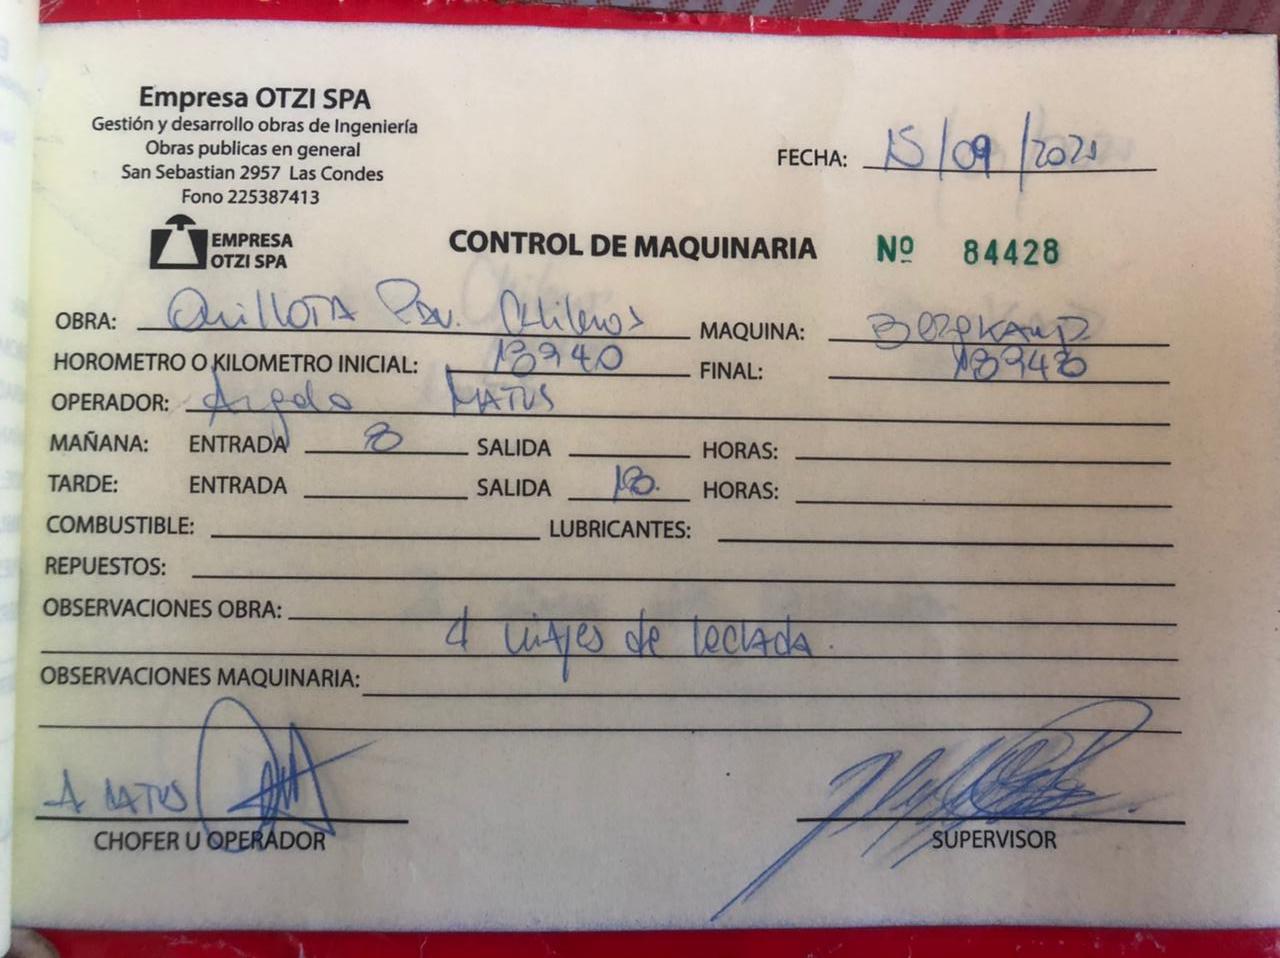 Empresa OTZI SPA
Gestión y desarrollo obras de Ingeniería
Obras publicas en general
San Sebastian 2957 Las Condes
Fono 225387413
FECHA: 15/09/2021
EMPRESA
OTZI SPA
CONTROL DE MAQUINARIA Nº 84428
OBRA: Quillota Chilenos MAQUINA:
HOROMETRO O KILOMETRO INICIAL: FINAL:
OPERADOR: Angelo MATUS
MAÑANA: ENTRADA 8 SALIDA HORAS:
TARDE: ENTRADA SALIDA 18. HORAS:
COMBUSTIBLE: LUBRICANTES:
REPUESTOS:
OBSERVACIONES OBRA:
4 viajes de lechada.
OBSERVACIONES MAQUINARIA:
A MATUS
CHOFER U OPERADOR SUPERVISOR